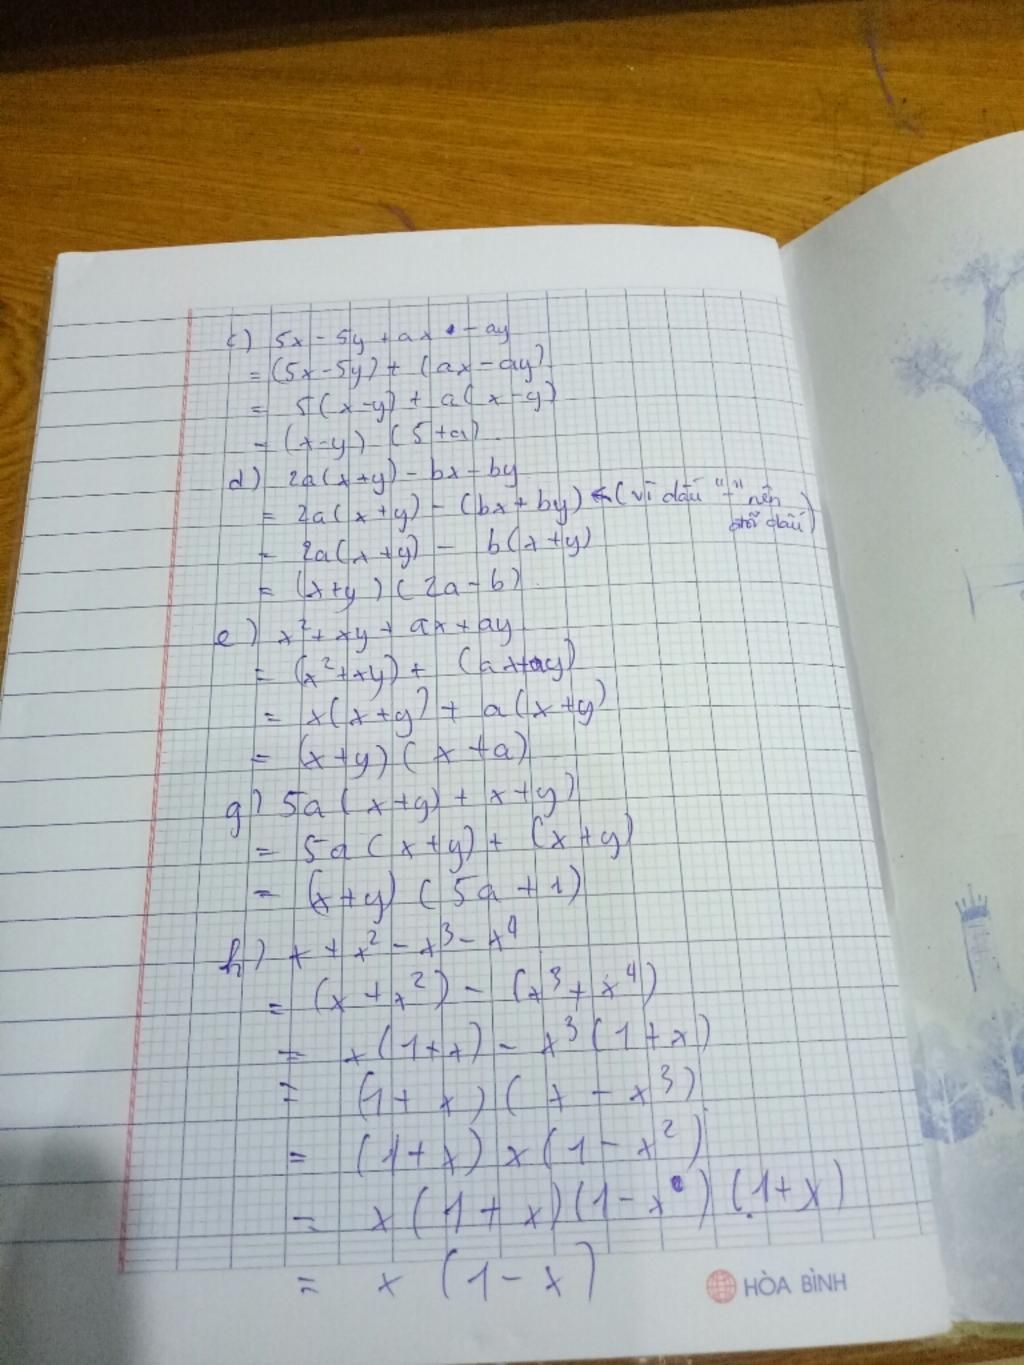 c) 5x - 5y + ax - ay
= (5x - 5y) + (ax - ay)
= 5(x - y) + a(x - y)
= (x - y) (5 + a)
d) 2a(x + y) - bx - by
= 2a(x + y) - (bx + by) ← (vì dấu "-" nên
đổi dấu)
= 2a(x + y) - b(x + y)
= (x + y) (2a - b)
e) x² + xy + ax + ay
= (x² + xy) + (ax + ay)
= x(x + y) + a(x + y)
= (x + y) (x + a)
g) 5a(x + y) + x + y)
= 5a(x + y) + (x + y)
= (x + y) (5a + 1)
h) x + x² - x³ - x⁴
= (x + x²) - (x³ + x⁴)
= x(1 + x) - x³(1 + x)
= (1 + x) (x - x³)
= (1 + x) x(1 - x²)
= x(1 + x)(1 - x) (1 + x)
= x (1 - x)
HÒA BÌNH